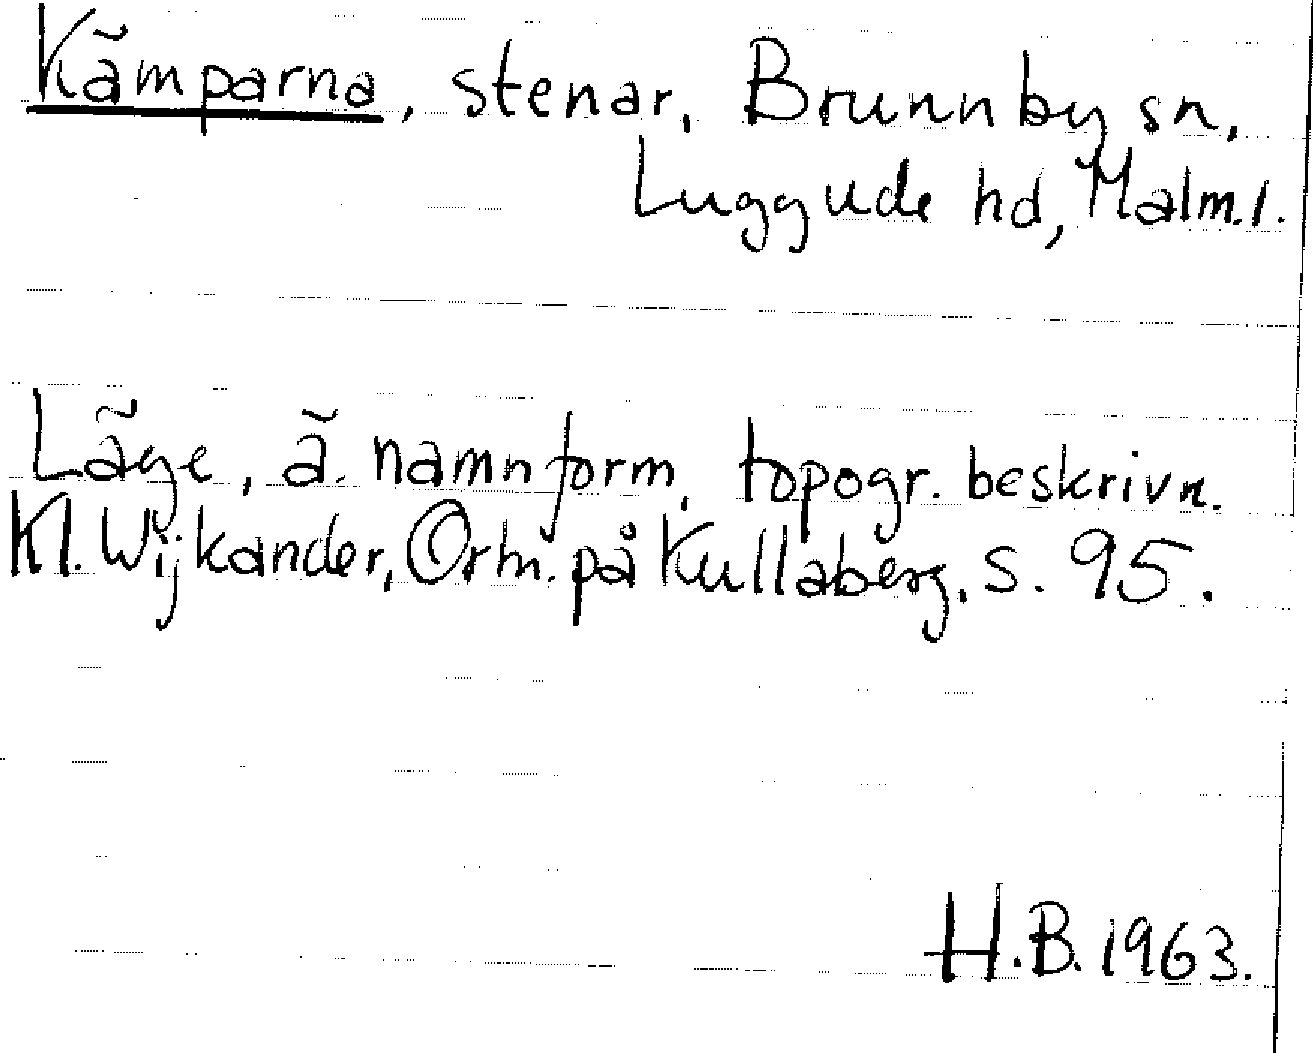 Kämparna, stenar, Brunnby sn,
Luggude hd, Malm.l.
Läge, ä. namnform, topogr. beskrivn.
Kl. Wijkander, Ortn. på Kullaberg, s. 95.
H.B. 1963.